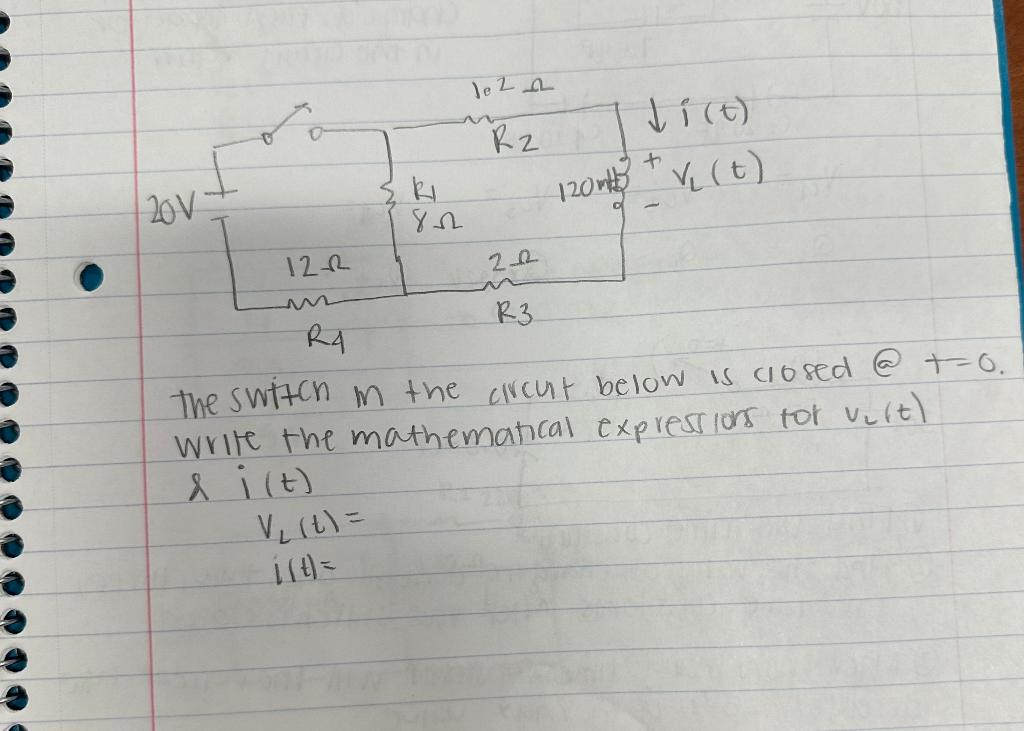 1.2 Ω
R2
↓ i(t)
20V
R1
8Ω
120mH
+ VL(t)
-
12Ω
2Ω
R4
R3
The switch in the circuit below is closed @ t=0.
Write the mathematical expressions for vL(t)
& i(t)
VL(t)=
i(t)=